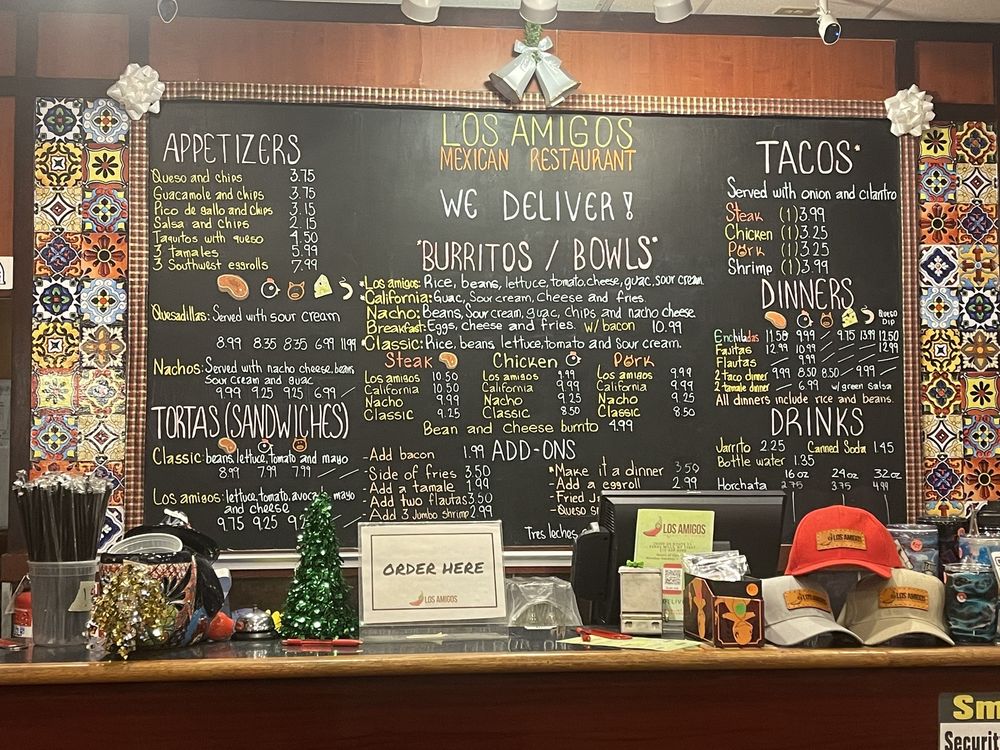 LOS AMIGOS
MEXICAN RESTAURANT
WE DELIVER!
APPETIZERS
Queso and chips 3.75
Guacamole and chips 3.75
Pico de gallo and chips 3.15
Salsa and chips 2.15
Taquitos with queso 4.50
3 tamales 5.99
3 Southwest eggrolls 7.99
Quesadillas: Served with sour cream
8.99 8.35 8.35 6.99 11.99
Nachos: Served with nacho cheese, beans
Sour cream and guac
9.99 9.25 9.25 6.99
TORTAS (SANDWICHES)
Classic: beans, lettuce, tomato and mayo
8.99 7.99 7.99
Los amigos: lettuce, tomato, avocado, mayo
and cheese
9.75 9.25
*BURRITOS / BOWLS*
Los amigos: Rice, beans, lettuce, tomato, cheese, guac, sour cream.
California: Guac, Sour cream, Cheese and fries.
Nacho: Beans, Sour cream, guac, chips and nacho cheese
Breakfast: Eggs, cheese and fries. w/ bacon 10.99
Classic: Rice, beans, lettuce, tomato and sour cream.
Steak
Los amigos 10.50
California 10.50
Nacho 9.99
Classic 9.25
Chicken
Los amigos 9.99
California 9.99
Nacho 9.25
Classic 8.50
Pork
Los amigos 9.99
California 9.99
Nacho 9.25
Classic 8.50
Bean and Cheese burrito 4.99
ADD-ONS
-Add bacon 1.99
-Side of fries 3.50
-Add a tamale 1.99
-Add two flautas 3.50
-Add 3 Jumbo shrimp 2.99
*Make it a dinner 3.50
-Add a eggroll 2.99
-Fried
-Queso
Tres leches
TACOS*
Served with onion and cilantro
Steak (1) 3.99
Chicken (1) 3.25
Pork (1) 3.25
Shrimp (1) 3.99
DINNERS
QUESO
DIP
Enchiladas 11.50 9.75 13.99 12.50
Fajitas 12.99 10.99 12.99
Flautas 9.99
2 taco dinner 9.99 8.50 8.50 9.99
2 tamale dinner 6.99 w/ green salsa
All dinners include rice and beans.
DRINKS
Jarrito 2.25 Canned Soda 1.45
Bottle water 1.35
16oz 24oz 32oz
Horchata 2.75 3.75 4.99
ORDER HERE
LOS AMIGOS
LOS AMIGOS
LOS AMIGOS
Sm
Securit